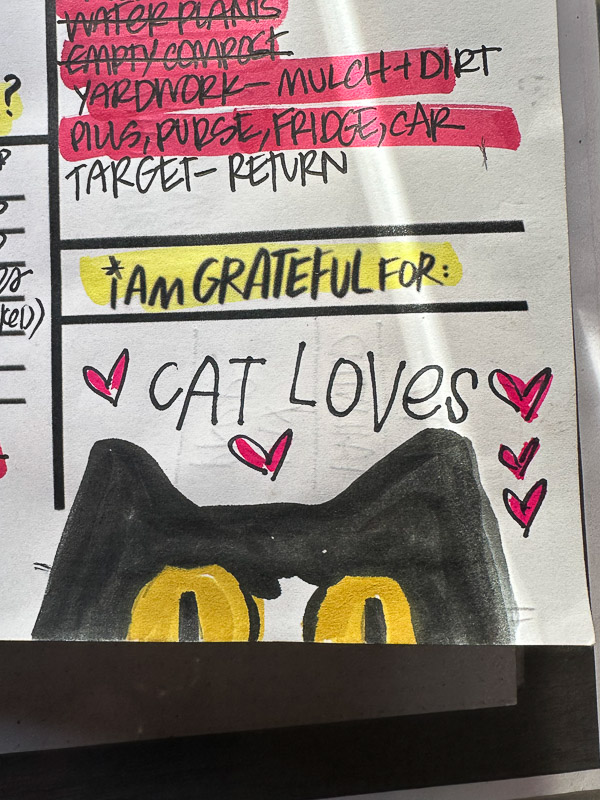 WATER PLANTS
EMPTY COMPOST
YARDWORK- MULCH + DIRT
PILLS, PURSE, FRIDGE, CAR
TARGET- RETURN
?
*i AM GRATEFUL FOR:
CAT LOVES